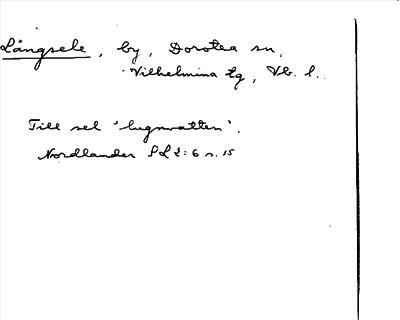 Långsele, by, Dorotea sn,
Vilhelmina tg, Vb. l.
Till sel 'lugnvatten'.
Nordlander SL 2:6 s. 15